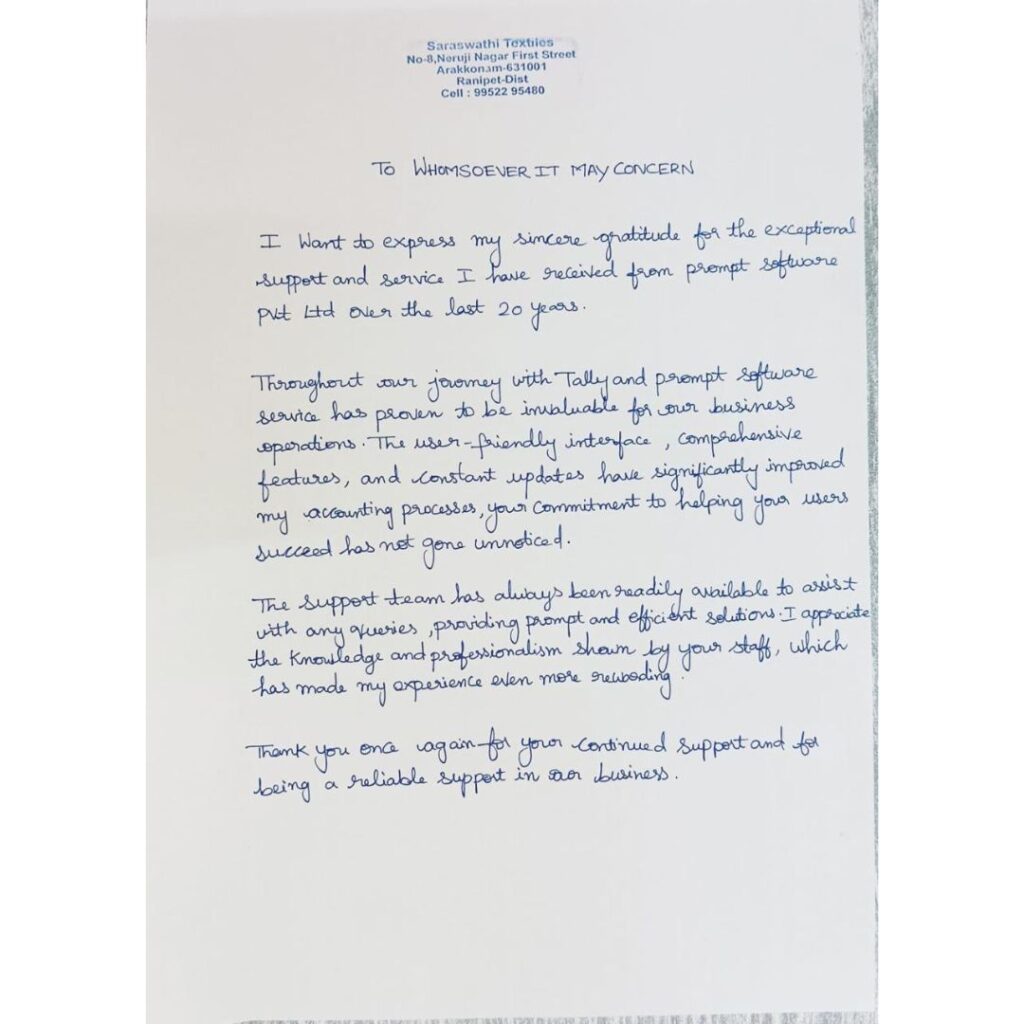 Saraswathi Textiles
No-8,Neruji Nagar First Street
Arakkonam-631001
Ranipet-Dist
Cell : 99522 95480
TO WHOMSOEVER IT MAY CONCERN
I Want to express my sincere gratitude for the exceptional
support and service I have received from prompt software
Pvt Ltd over the last 20 years.
Throughout our journey with Tally and prompt software
service has proven to be invaluable for our business
operations. The user-friendly interface, comprehensive
features, and constant updates have significantly improved
my accounting processes, your commitment to helping your users
succeed has not gone unnoticed.
The support team has always been readily available to assist
with any queries, providing prompt and efficient solutions. I appreciate
the knowledge and professionalism shown by your staff, which
has made my experience even more rewboding.
Thank you once again for your continued support and for
being a reliable support in our business.